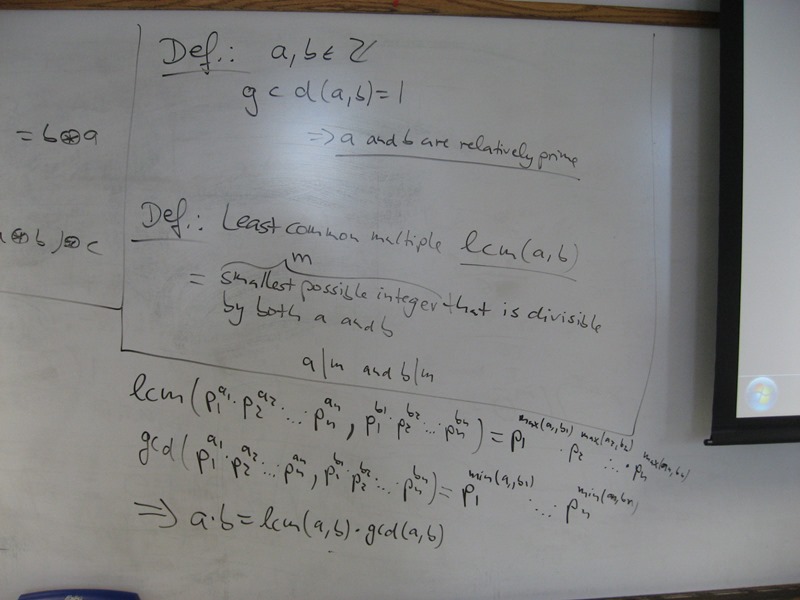 = b⊛a
⊛b)⊛c
Def.: a,b ∈ ℤ
gcd(a,b)=1
⇒ a and b are relatively prime
Def.: Least common multiple lcm(a,b)
m
= smallest possible integer that is divisible
by both a and b
a|m and b|m
lcm(p₁^a₁·p₂^a₂·…·pₙ^aₙ, p₁^b₁·p₂^b₂·…·pₙ^bₙ) = p₁^max(a₁,b₁)·p₂^max(a₂,b₂)·…·pₙ^max(aₙ,bₙ)
gcd(p₁^a₁·p₂^a₂·…·pₙ^aₙ, p₁^b₁·p₂^b₂·…·pₙ^bₙ) = p₁^min(a₁,b₁)·…·pₙ^min(aₙ,bₙ)
⇒ a·b = lcm(a,b)·gcd(a,b)